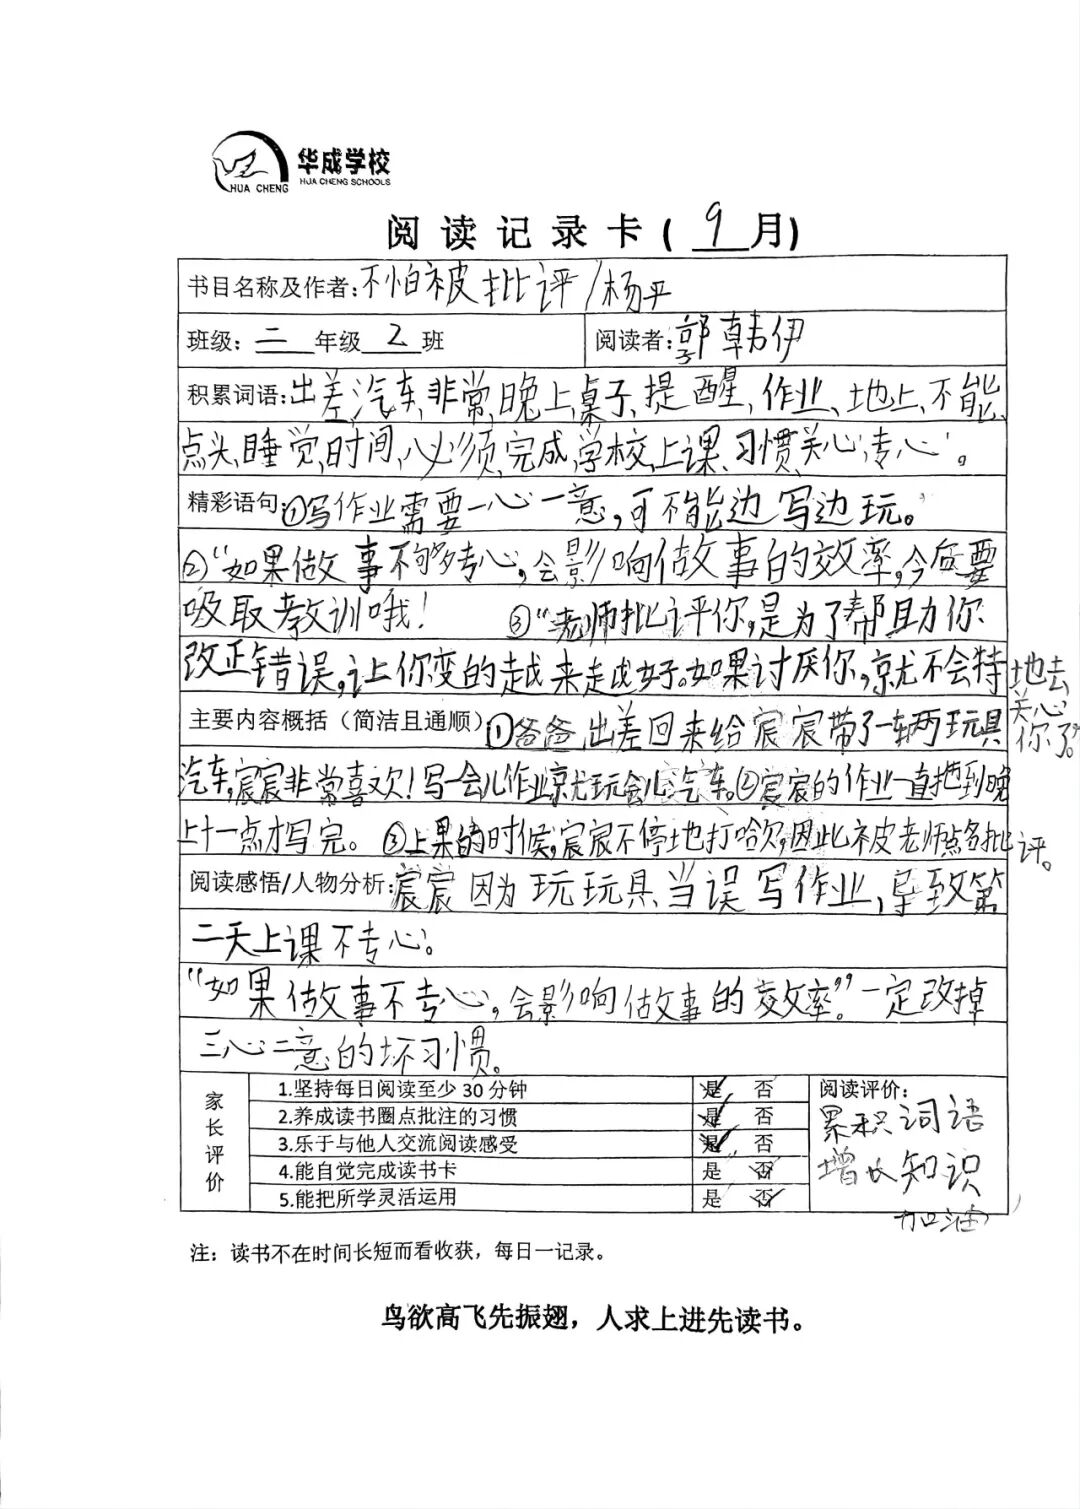 华成学校
HUA CHENG SCHOOLS
HUA CHENG
阅读记录卡(9月)
书目名称及作者:不怕被批评/杨平
班级:二年级2班 阅读者:郭韩伊
积累词语:出差、汽车、非常、晚上、桌子、提醒、作业、地上、不能、
点头、睡觉、时间、必须、完成、学校、上课、习惯、关心、专心。
精彩语句:①写作业需要一心一意,可不能边写边玩。
②“如果做事不够专心,会影响做事的效率,今后要
吸取教训哦! ③“老师批评你,是为了帮助你
改正错误,让你变的越来越好。如果讨厌你,就不会特地去
关心
你了。”
主要内容概括(简洁且通顺)①爸爸出差回来给宸宸带了一辆玩具
汽车,宸宸非常喜欢!写一会儿作业就玩会儿汽车。②宸宸的作业一直拖到晚
上十一点才写完。③上课的时候,宸宸不停地打哈欠,因此被老师点名批评。
阅读感悟/人物分析:宸宸因为玩玩具当误写作业,导致第
二天上课不专心。
“如果做事不专心,会影响做事的效率。”一定改掉
三心二意的坏习惯。
家长评价
1.坚持每日阅读至少30分钟 是 否
2.养成读书圈点批注的习惯 是 否
3.乐于与他人交流阅读感受 是 否
4.能自觉完成读书卡 是 否
5.能把所学灵活运用 是 否
阅读评价:
累积词语
增长知识
加油
注:读书不在时间长短而看收获,每日一记录。
鸟欲高飞先振翅,人求上进先读书。